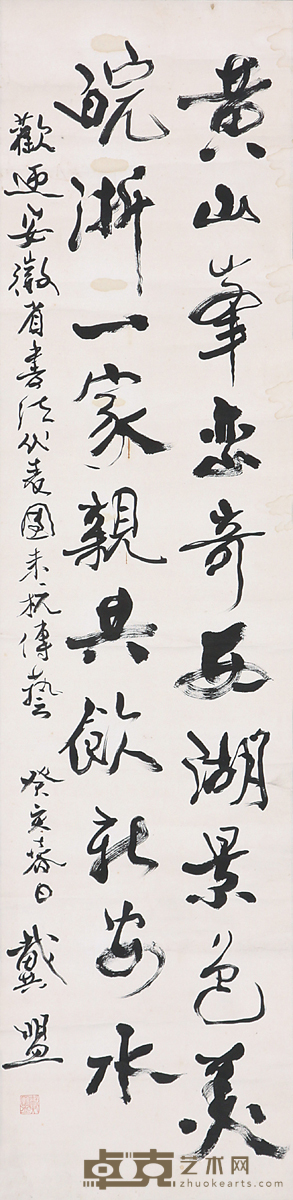 黄山峯峦奇西湖景色美
皖浙一家親共飲新安水
歡迎安徽省書法代表團来杭傳藝 癸亥春日 戴盟
卓克艺术网
www.zhuokearts.com